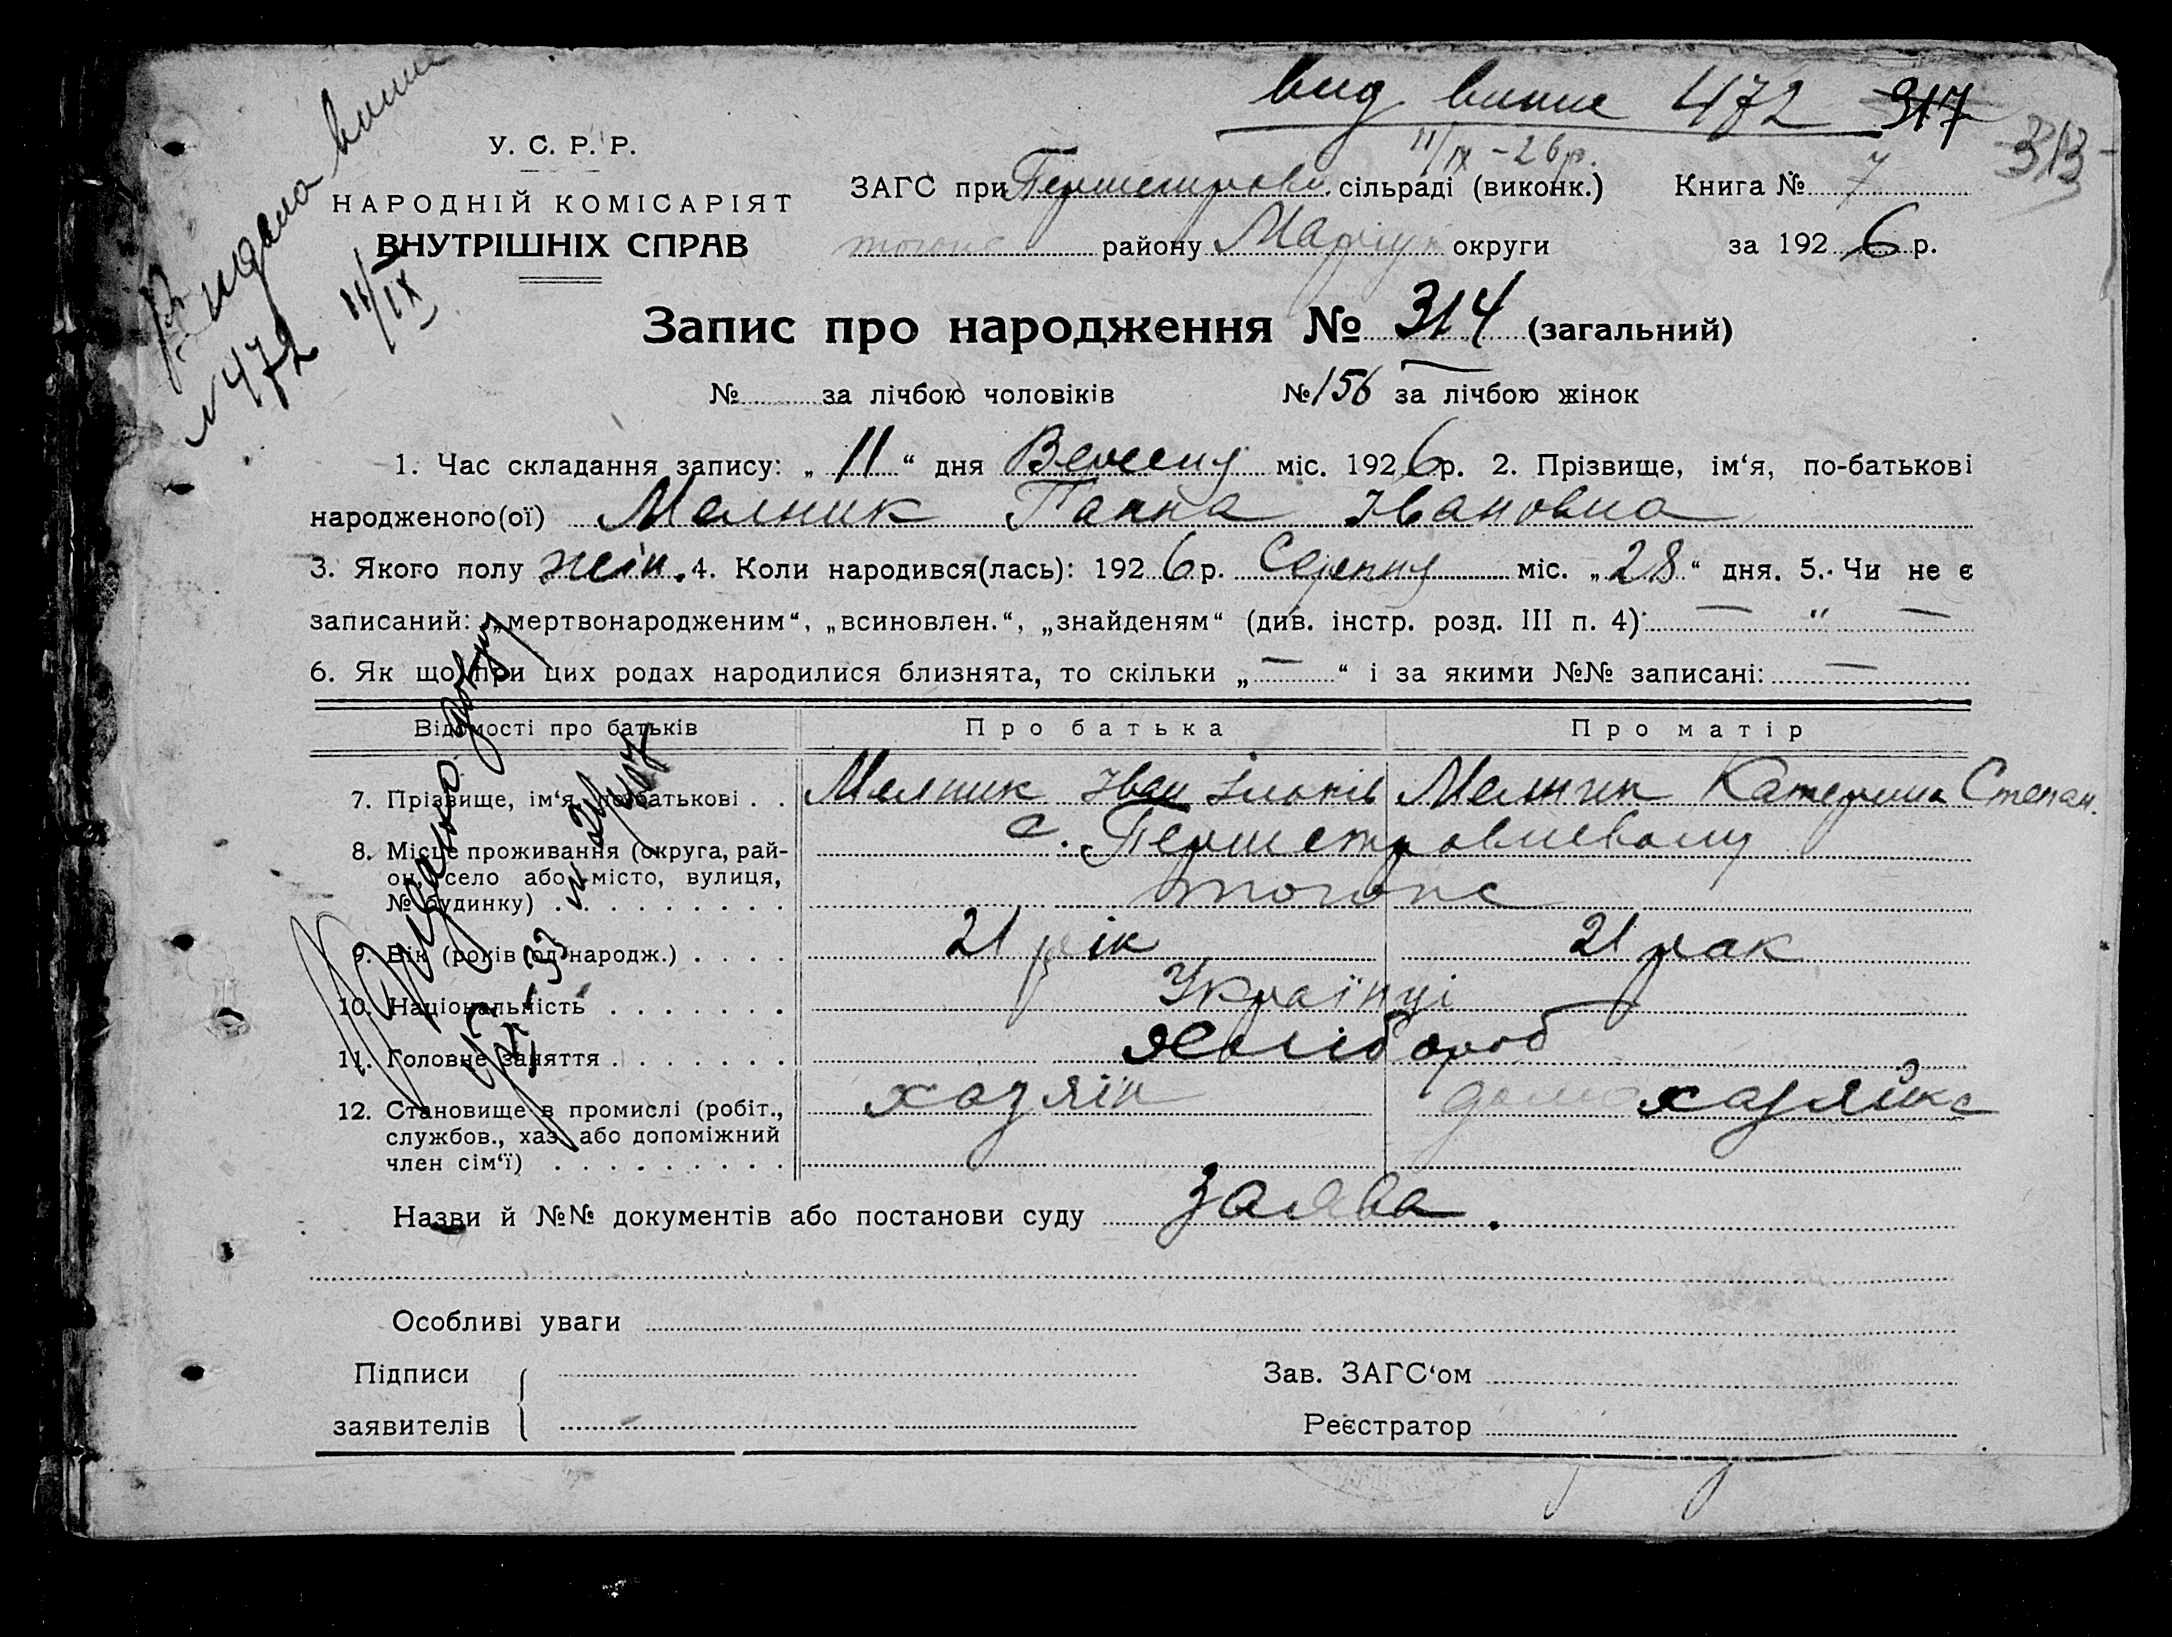 вид випис 472 317
313
11/IX - 26 р.
Видано випис
№ 472 11/IX
У. С. Р. Р.
НАРОДНІЙ КОМІСАРІЯТ
ВНУТРІШНІХ СПРАВ
ЗАГС при сільраді (виконк.) Книга № 7
тогопс району Маріуп округи за 1926 р.
Запис про народження № 314 (загальний)
№ за лічбою чоловіків № 156 за лічбою жінок
1. Час складання запису: „11“ дня Вересня міс. 1926 р. 2. Прізвище, ім‘я, по-батькові
народженого(ої) Мелник Ганна Івановна
3. Якого полу жін. 4. Коли народився(лась): 1926 р. Серпня міс. „28“ дня. 5. Чи не є
записаний: „мертвонародженим“, „всиновлен.“, „знайденям“ (див. інстр. розд. III п. 4) — " —
6. Як що при цих родах народилися близнята, то скільки „—“ і за якими №№ записані: —
Відомості про батьків Про батька Про матір
7. Прізвище, ім‘я, по-батькові . . Мелник Іван Мелник Катерина Степан.
8. Місце проживання (округа, рай-
он, село або місто, вулиця,
№ будинку) . . . . . . . . .
с.
тогопс
9. Вік (років од народж.) . . . . 21 рік 21 рак
10. Національність . . . . . . . Українці
11. Головне заняття . . . . . . . Хлібороб
12. Становище в промислі (робіт.,
службов., хаз. або допоміжний
член сім‘ї) . . . . . . . . .
хазяїн домохазяйка
Видано
Назви й №№ документів або постанови суду Заява.
Особливі уваги
Підписи
заявителів
Зав. ЗАГС‘ом
Реєстратор